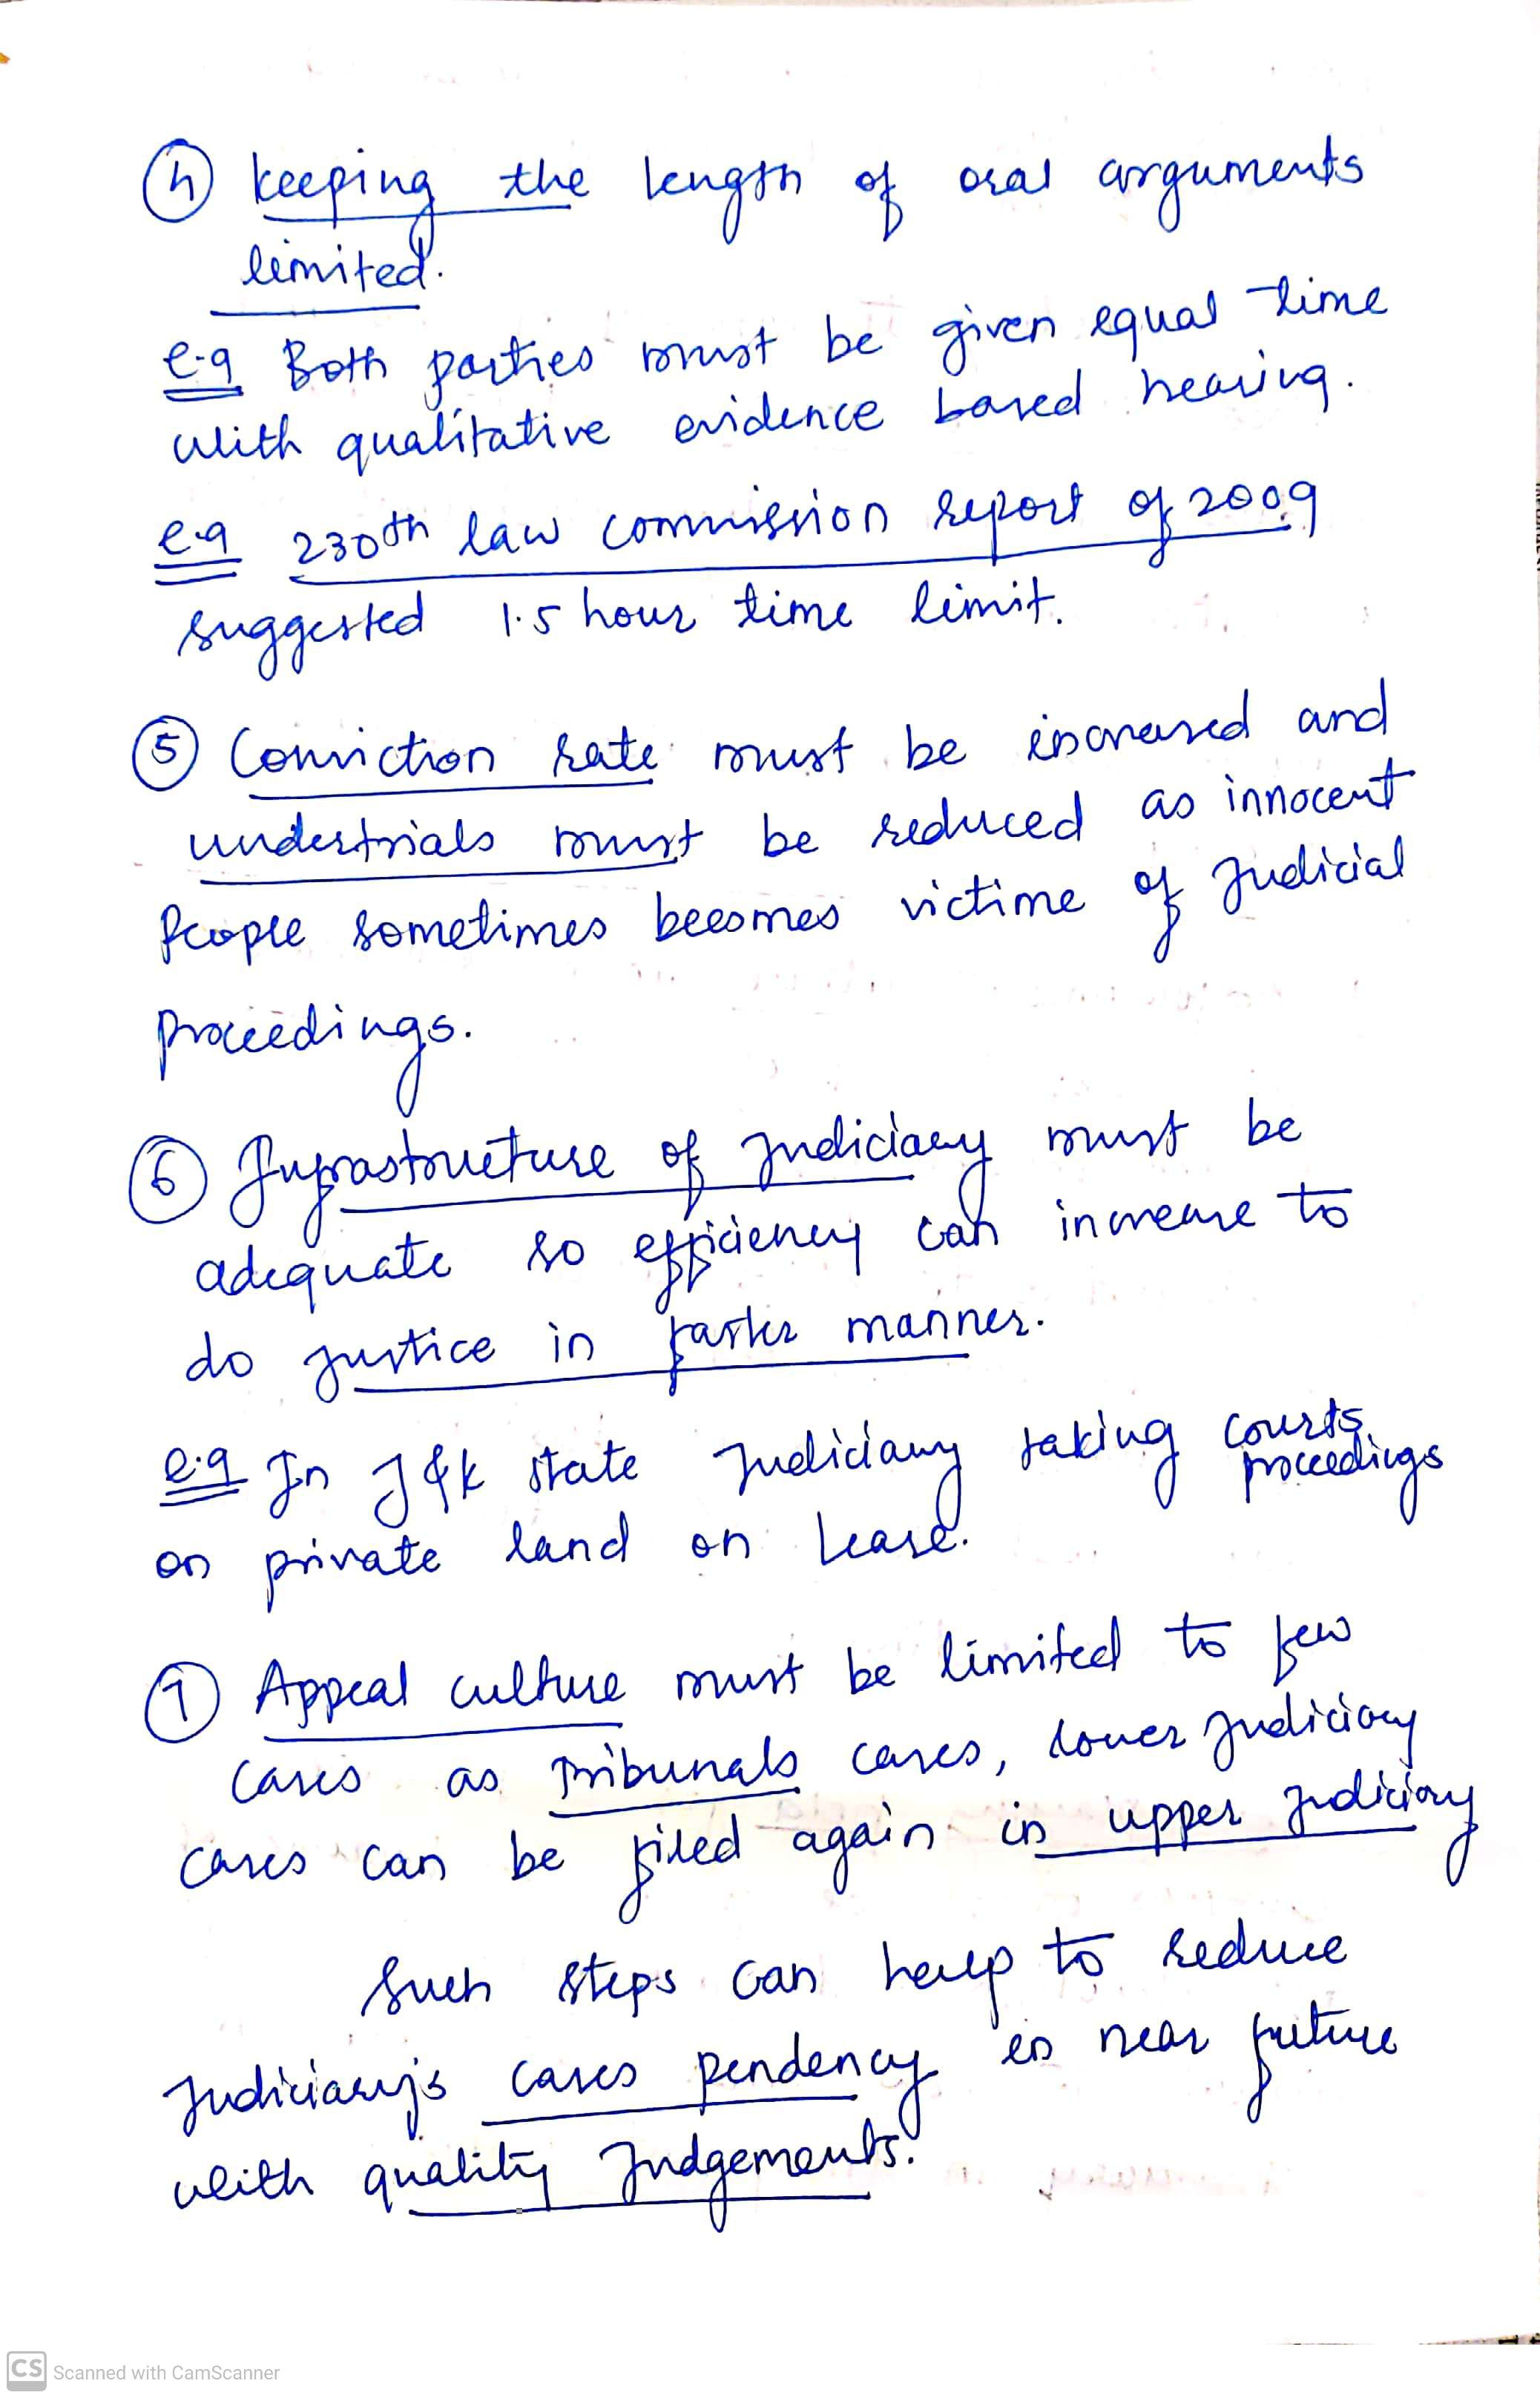 ④ keeping the length of oral arguments
limited.
e.g Both parties must be given equal time
with qualitative evidence based hearing.
e.g 230th law commission report of 2009
suggested 1.5 hour time limit.
⑤ Conviction rate must be increased and
undertrials must be reduced as innocent
People sometimes becomes victime of Judicial
proceedings.
⑥ Infrastructure of judiciary must be
adequate so efficiency can increase to
do justice in faster manner.
e.g In J&K state Judiciary taking courts proceedings
on private land on lease.
⑦ Appeal culture must be limited to few
cases as Tribunals cases, lower judiciary
cases can be filed again in upper judiciary
Such steps can help to reduce
Judiciary's cases pendency in near future
with quality Judgements.
CS Scanned with CamScanner